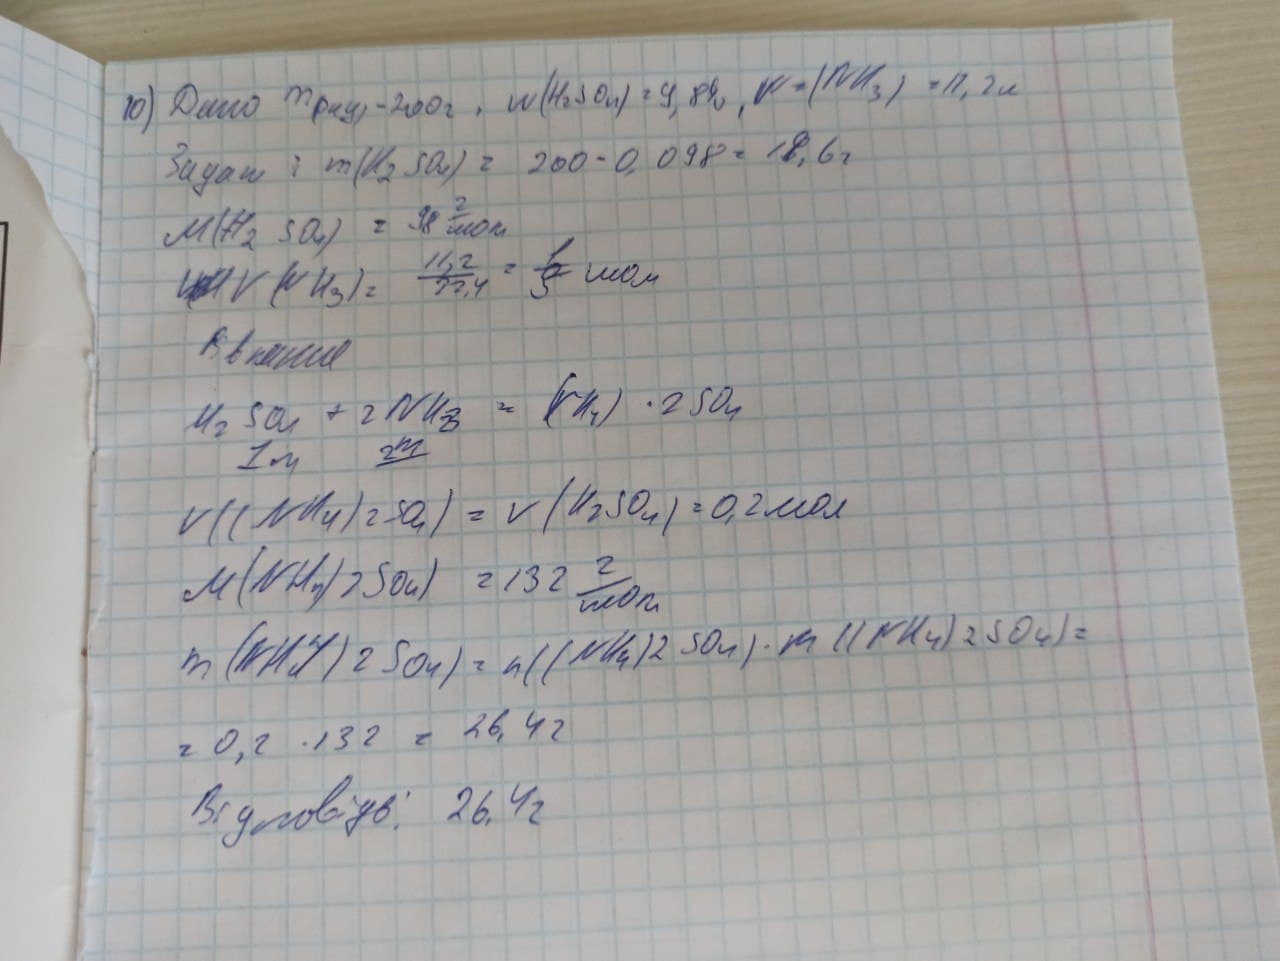 10) Дано m = 200г, w(H2SO4) = 9,8%, V = (NH3) = 11,2л
m(H2SO4) = 200 - 0,098 = 18,6г
M(H2SO4) = 98 г/мол
V(NH3) = 11,2/22,4 = мол
H2SO4 + 2NH3 = (NH4) · 2SO4
1м 2m
V((NH4)2SO4) = V(H2SO4) = 0,2мол
M(NH4)2SO4) = 132 г/мол
m(NH4)2SO4) = n((NH4)2SO4) · m((NH4)2SO4) =
= 0,2 · 132 = 26,4г
Відповідь: 26,4г